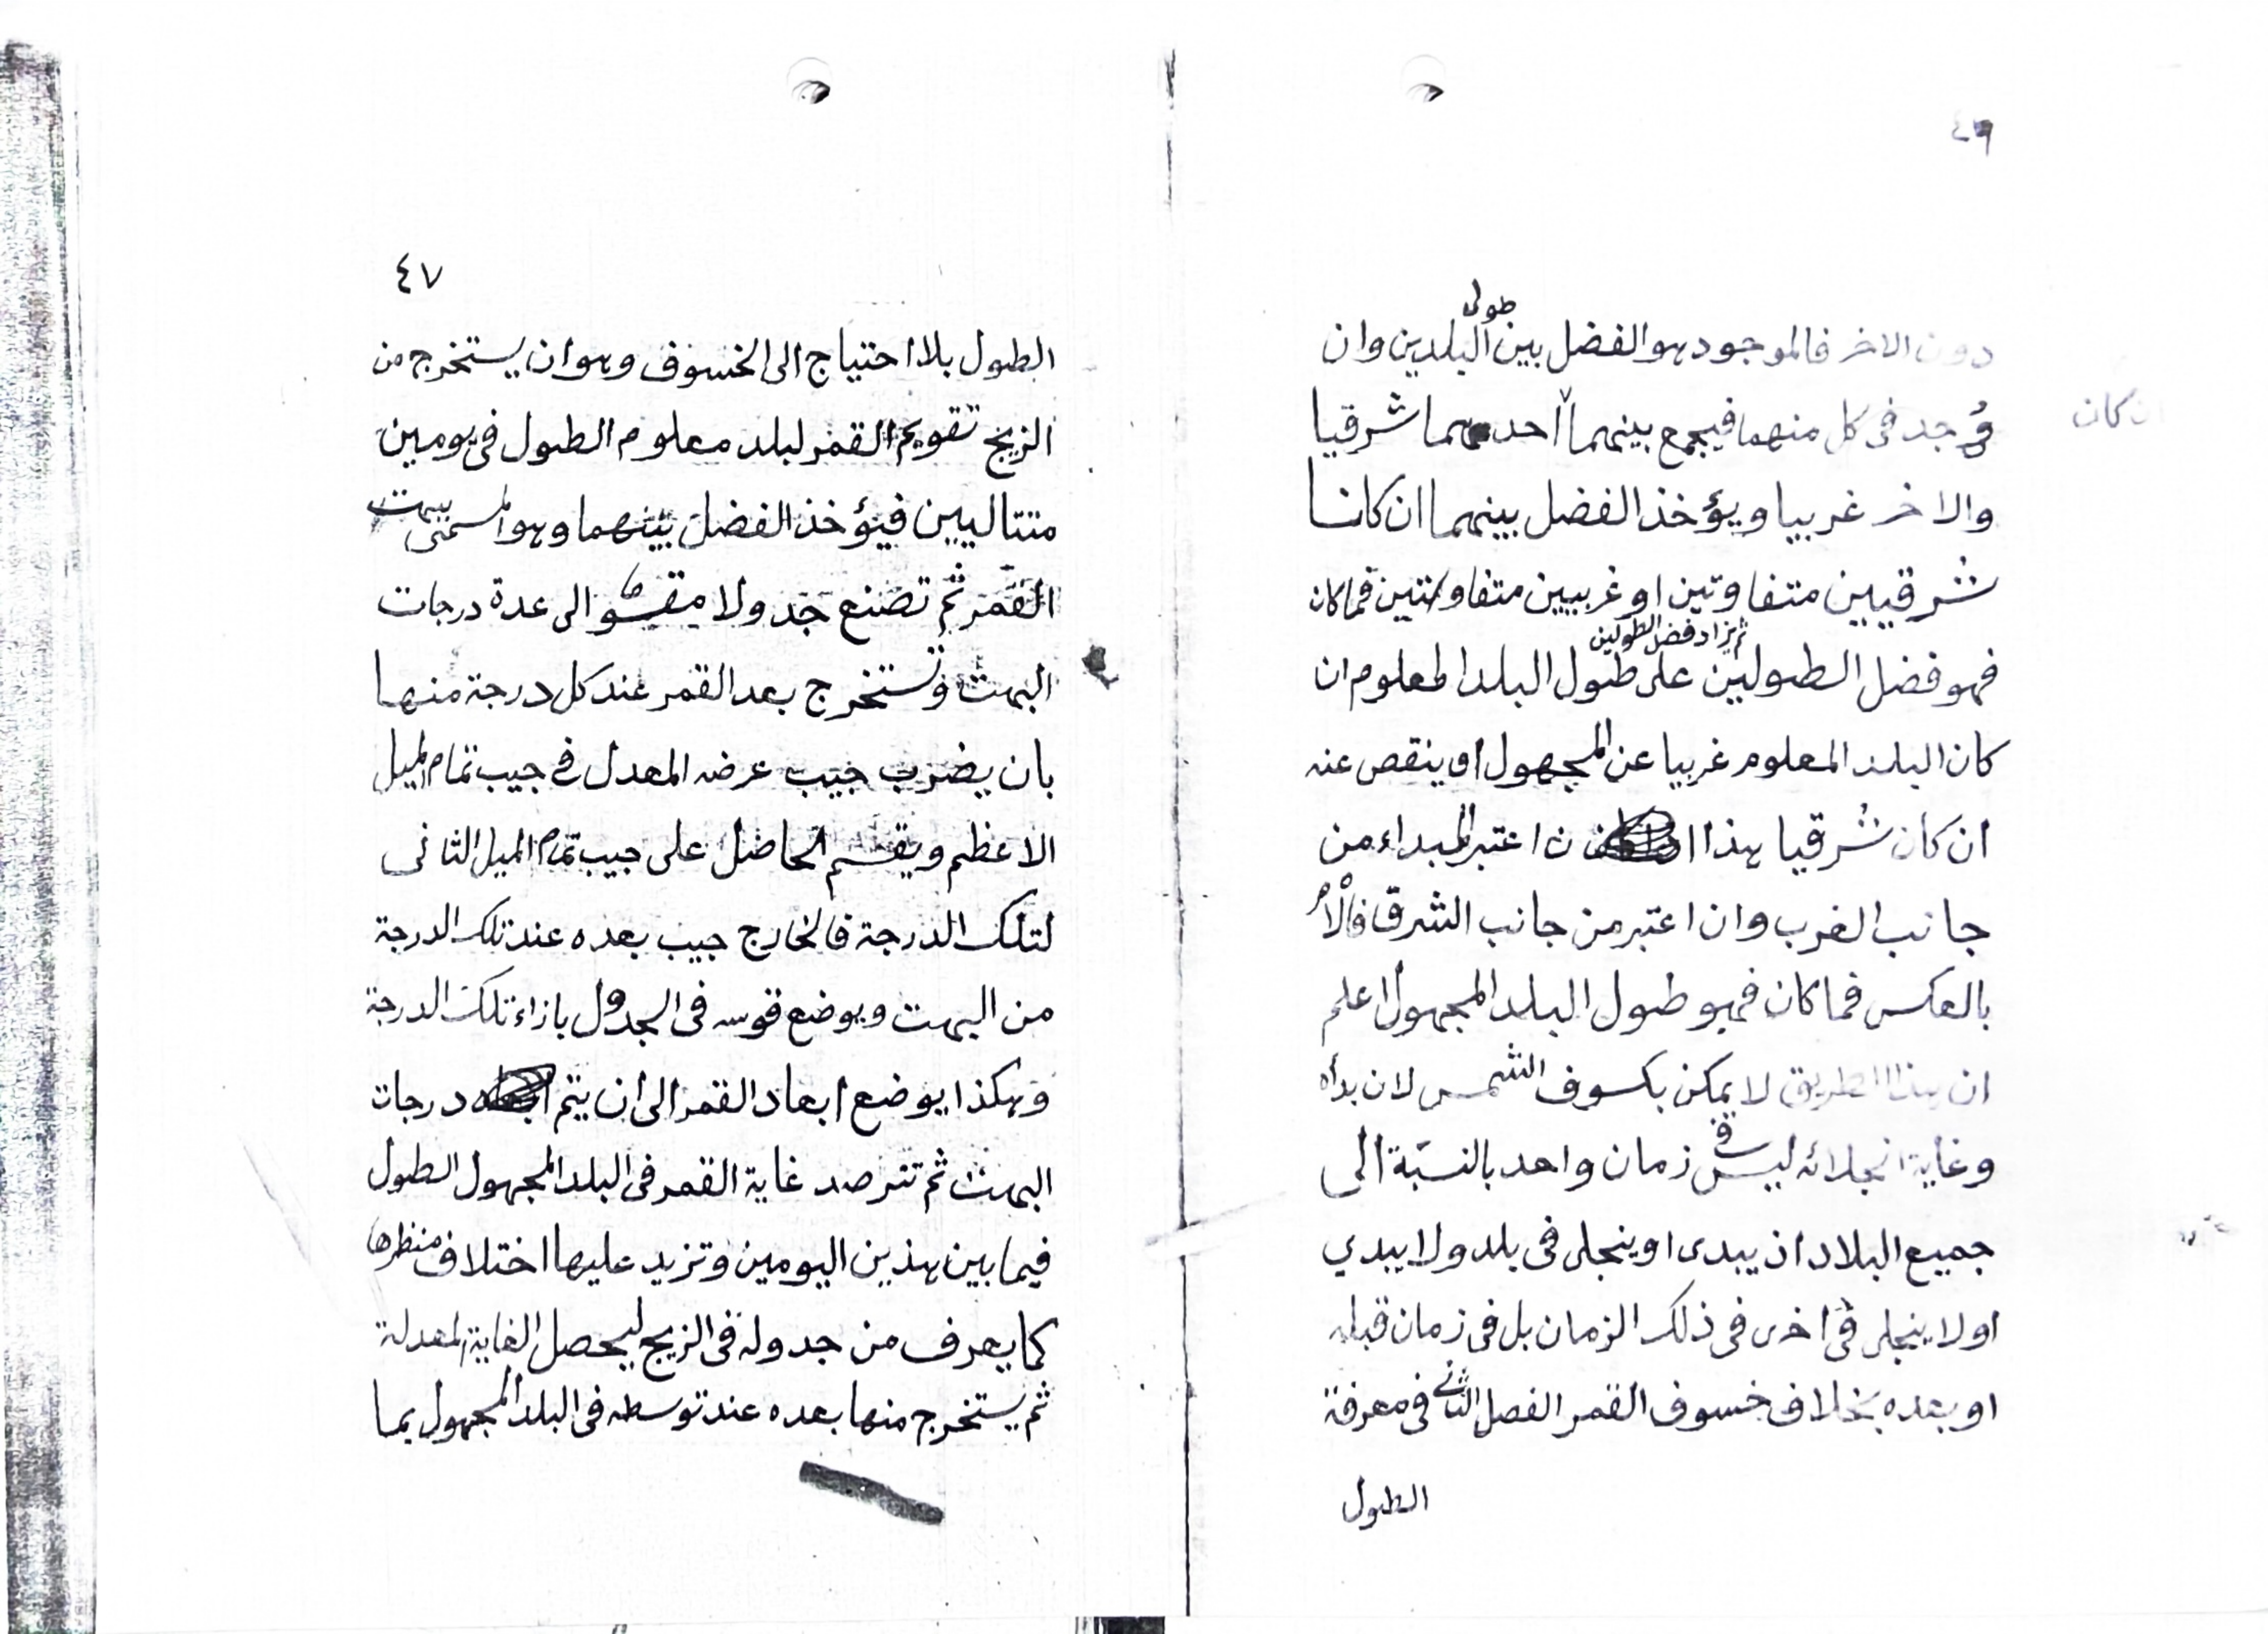 ٤٦
دون الاخر فالموجود هو الفضل بين طولى البلدين وان
وُجد فى كل منهما فيجمع بينهما احدهما شرقيا
ان كان
والاخر غربيا ويؤخذ الفضل بينهما ان كانا
شرقيين متفاوتين او غربيين متفاوتين فما كان
فهو فضل الطولين ثم يزاد فضل الطولين على طول البلد المعلوم ان
كان البلد المعلوم غربيا عن المجهول او ينقص عنه
ان كان شرقيا هذا ان اعتبر المبداء من
جانب الغرب وان اعتبر من جانب الشرق فالأمر
بالعكس فما كان فهو طول البلد المجهول اعلم
ان هذا الطريق لا يمكن بكسوف الشمس لان بدأه
وغاية انجلائه ليس فى زمان واحد بالنسبة الى
جميع البلاد اذ يبدى او ينجلى فى بلد ولا يبدي
او لا ينجلى فى اخرى فى ذلك الزمان بل فى زمان قبله
او بعده بخلاف خسوف القمر الفصل الثانى فى معرفة
الطول
٤٧
الطول بلا احتياج الى الخسوف وهو ان يستخرج من
الزيج تقويم القمر لبلد معلوم الطول فى يومين
متتاليين فيؤخذ الفضل بينهما وهو المسمى ببهت
القمر ثم تصنع جدولا مقسوما الى عدة درجات
البهت وتستخرج بعد القمر عند كل درجة منها
بان يضرب جيب عرضه المعدل فى جيب تمام الميل
الاعظم ويقسم الحاصل على جيب تمام الميل الثانى
لتلك الدرجة فالخارج جيب بعده عند تلك الدرجة
من البهت ويوضع قوسه فى الجدول بازاء تلك الدرجة
وهكذا يوضع ابعاد القمر الى ان يتم درجات
البهت ثم تترصد غاية القمر فى البلد المجهول الطول
فيما بين هذين اليومين وتزيد عليها اختلاف منظرها
كما يعرف من جدوله فى الزيج ليحصل الغاية المعدلة
ثم يستخرج منها بعده عند توسطه فى البلد المجهول بما